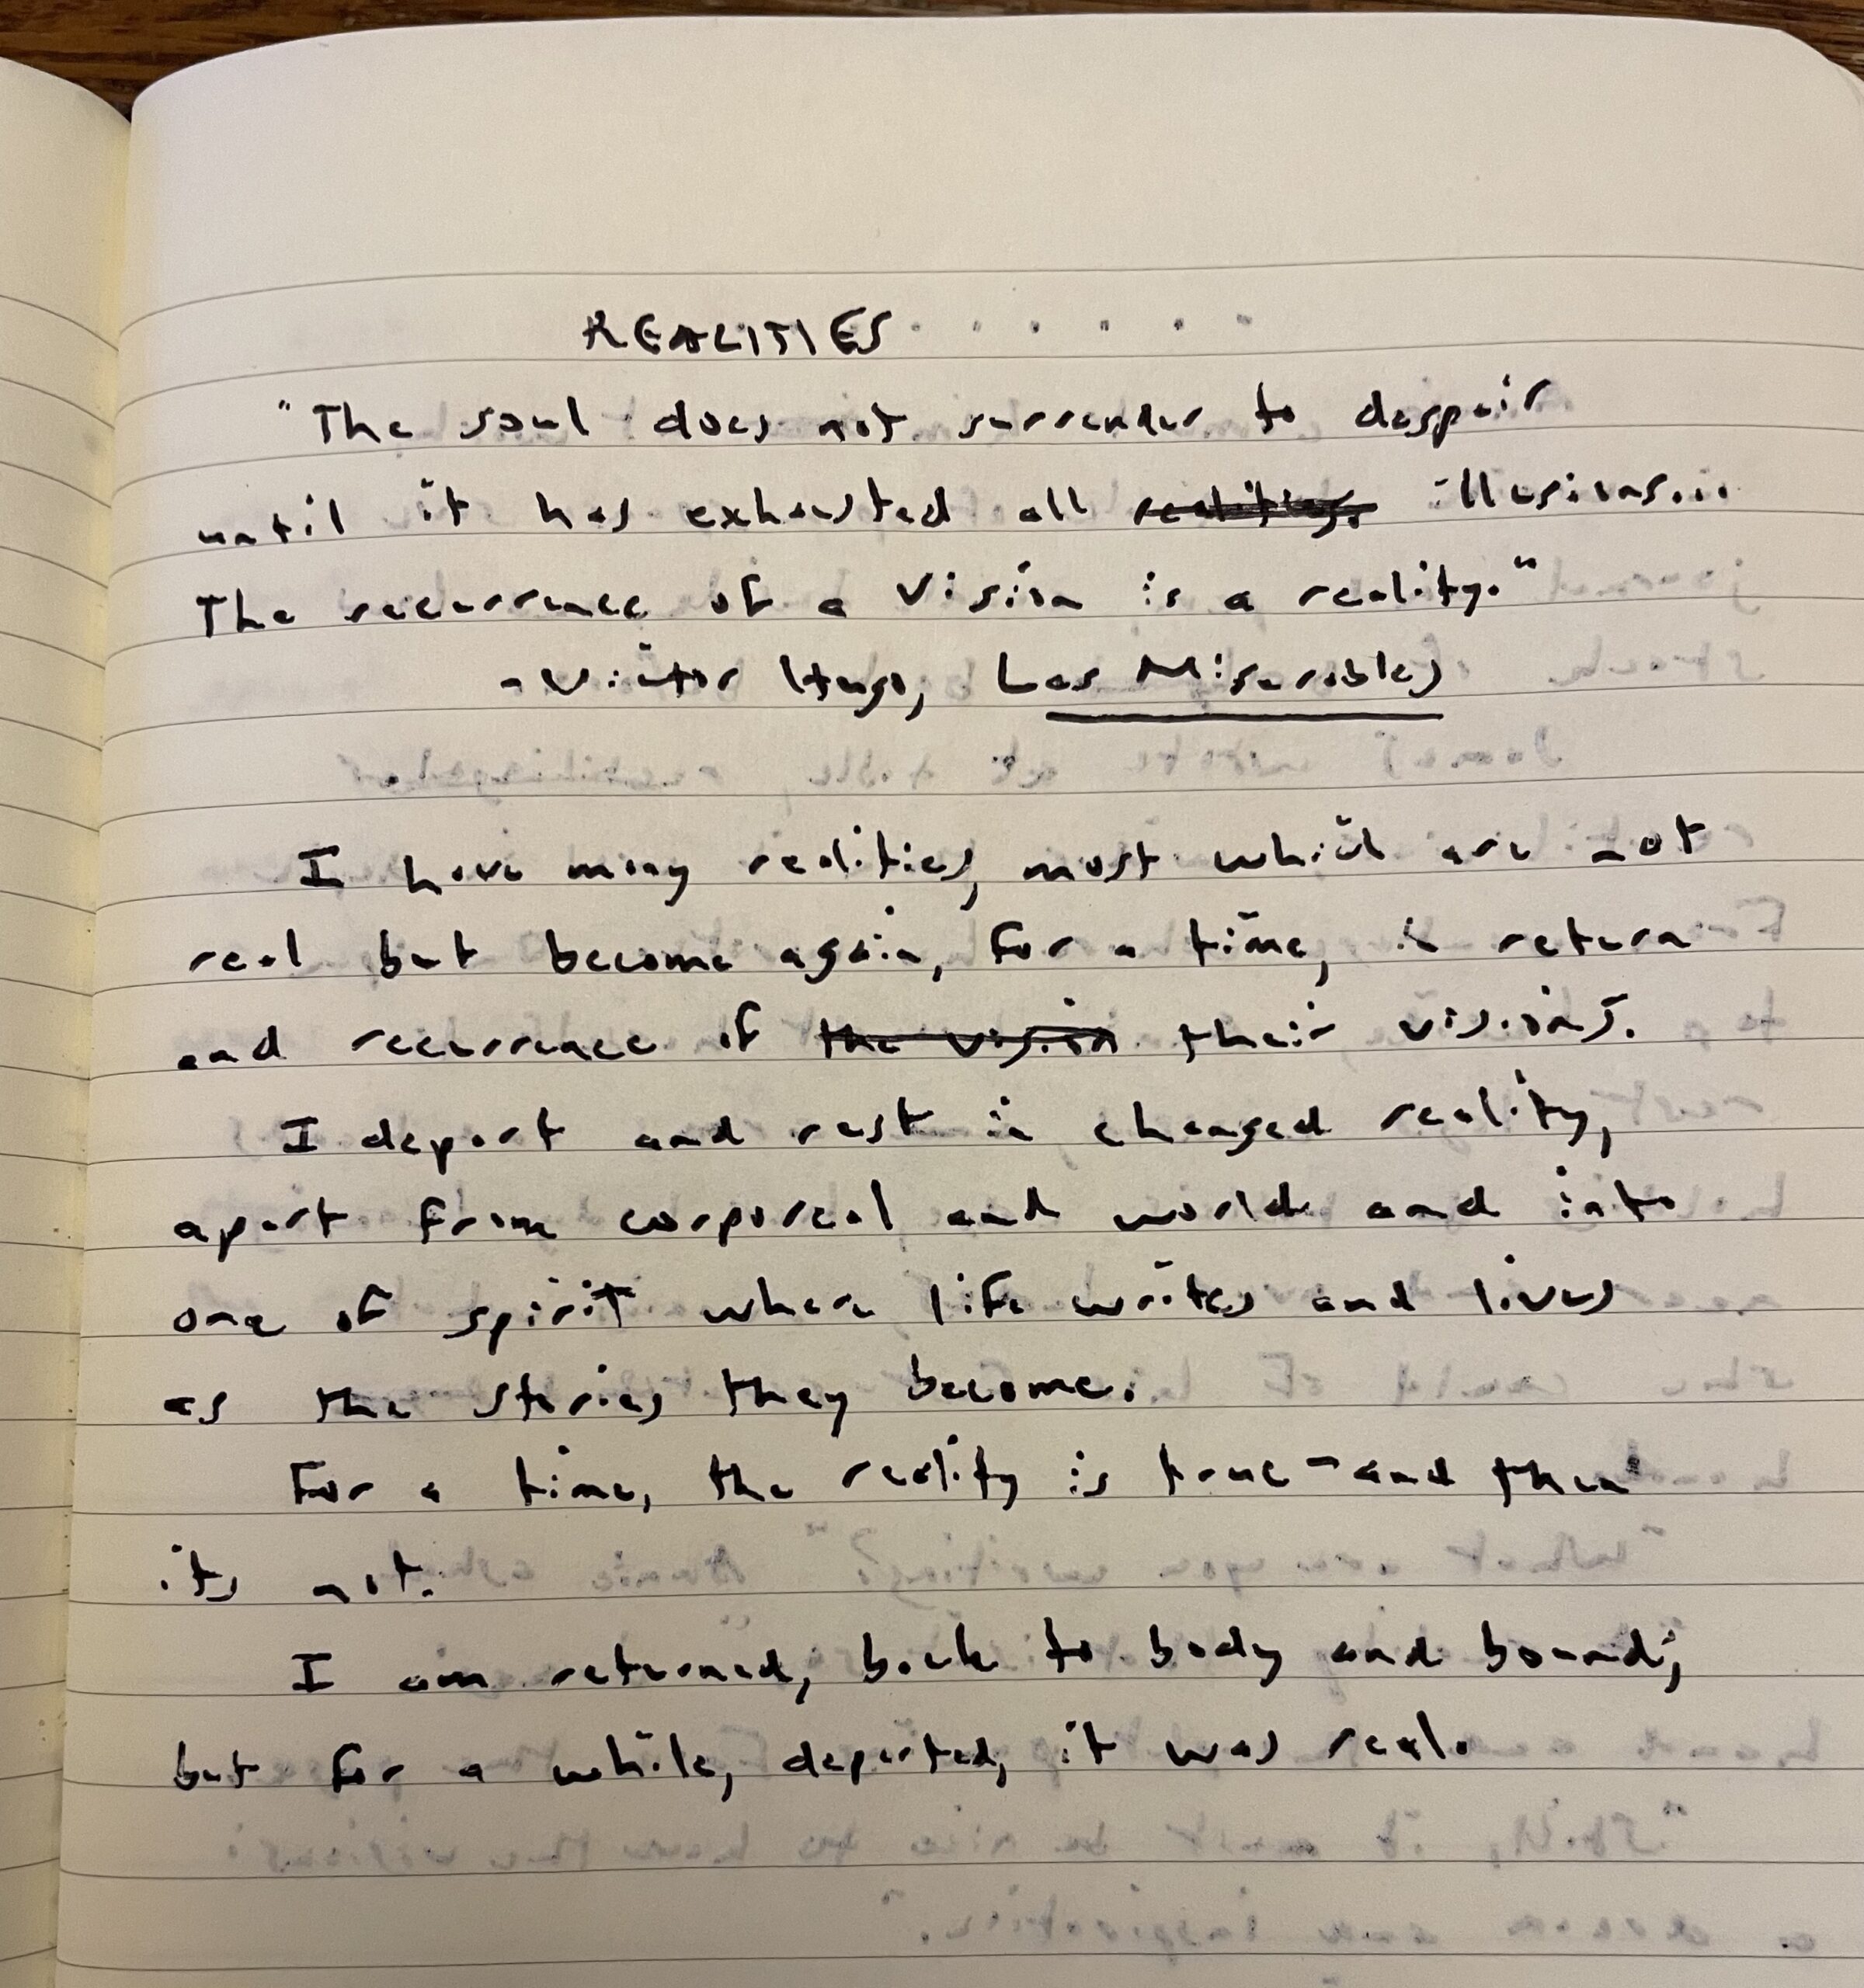 REALITIES . . . . . .
"The soul does not surrender to despair
until it has exhausted all realities. illusions...
The recurrence of a vision is a reality."
- Victor Hugo, Les Miserables
I have many realities, most which are not
real but become again, for a time, in return
and recurrence of the vision their visions.
I depart and rest in changed reality,
apart from corporeal and world and into
one of spirit where life writes and lives
as the stories they become.
For a time, the reality is true - and then
its not.
I am returned, back to body and bound;
but for a while, departed, it was real.